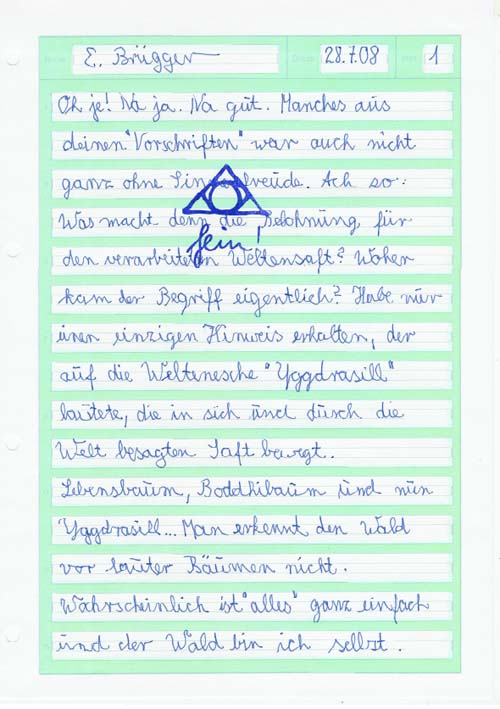 E. Brügger 28.7.08 1
Oh je! Na ja. Na gut. Manches aus
deinen "Vorschriften" war auch nicht
ganz ohne Sinnenfreude. Ach so:
Was macht denn die Belohnung für
fein!
den verarbeiteten Weltensaft? Woher
kam der Begriff eigentlich? Habe nur
einen einzigen Hinweis erhalten, der
auf die Weltenesche "Yggdrasill"
lautete, die in sich und durch die
Welt besagten Saft bewegt.
Lebensbaum, Boddhibaum und nun
Yggdrasill... Man erkennt den Wald
vor lauter Bäumen nicht.
Wahrscheinlich ist "alles" ganz einfach
und der Wald bin ich selbst.